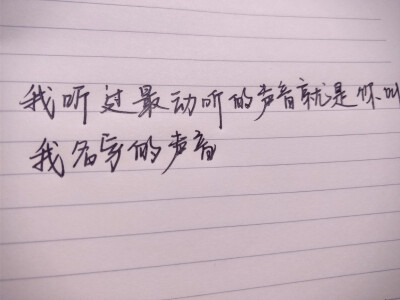 我听过最动听的声音就是你叫
我名字的声音